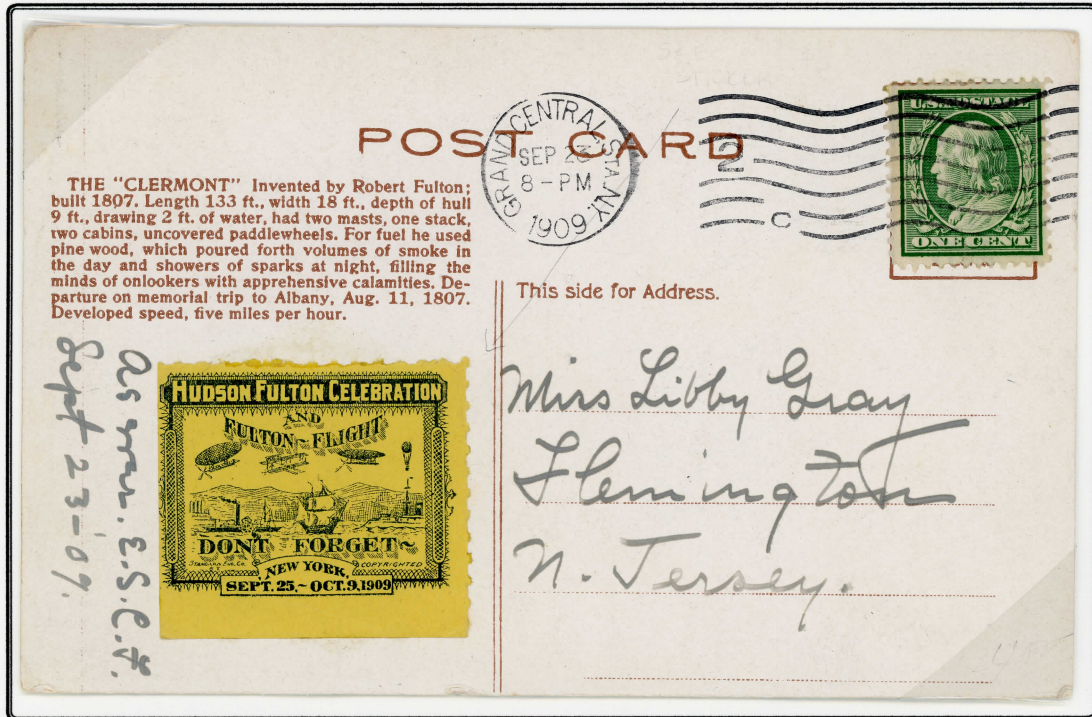 POST CARD
GRAND CENTRAL STA. N.Y.
SEP 23
8 - PM
1909
2
C
U.S. POSTAGE
ONE CENT
THE "CLERMONT" Invented by Robert Fulton;
built 1807. Length 133 ft., width 18 ft., depth of hull
9 ft., drawing 2 ft. of water, had two masts, one stack,
two cabins, uncovered paddlewheels. For fuel he used
pine wood, which poured forth volumes of smoke in
the day and showers of sparks at night, filling the
minds of onlookers with apprehensive calamities. De-
parture on memorial trip to Albany, Aug. 11, 1807.
Developed speed, five miles per hour.
This side for Address.
Miss Libby Gray
Flemington
N. Jersey.
HUDSON FULTON CELEBRATION
AND
FULTON~FLIGHT
DONT FORGET~
STANDARD ENG. CO.
COPYRIGHTED
NEW YORK,
SEPT. 25,~OCT. 9, 1909
as ever. E.S.C.H.
Sept 23-09.